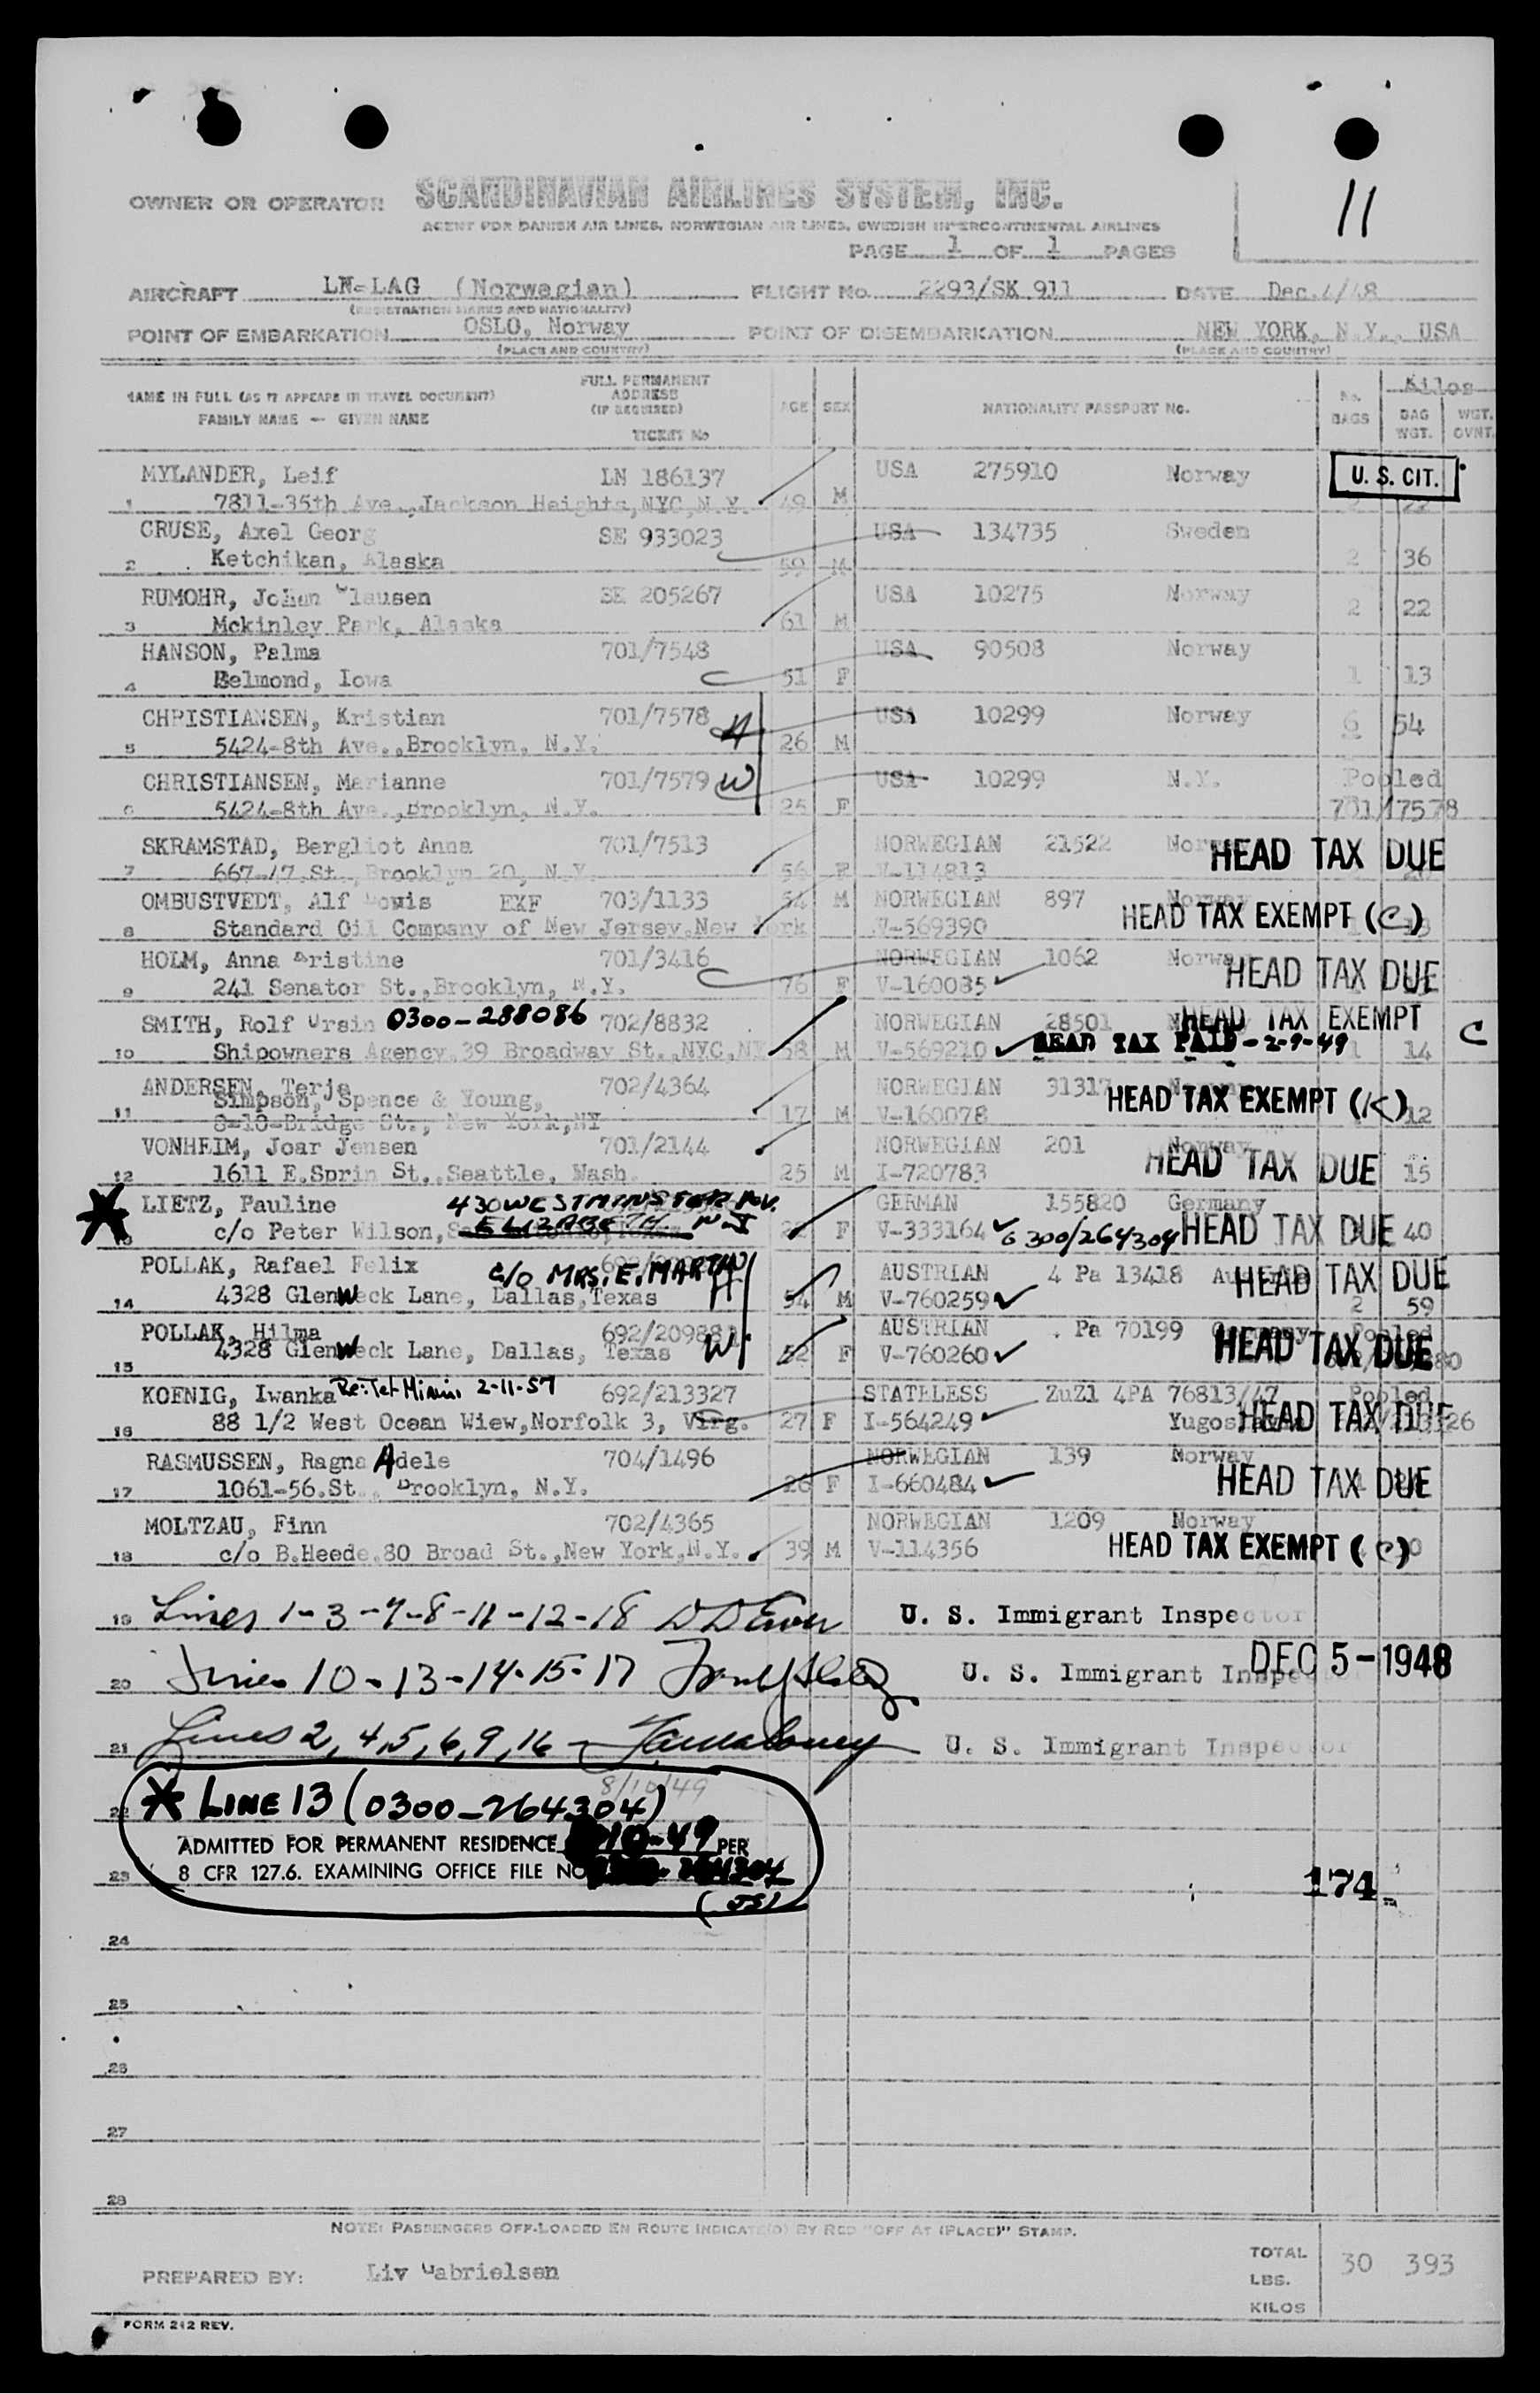 11
OWNER OR OPERATOR SCANDINAVIAN AIRLINES SYSTEM, INC.
AGENT FOR DANISH AIR LINES, NORWEGIAN AIR LINES, SWEDISH INTERCONTINENTAL AIRLINES
PAGE 1 OF 1 PAGES
AIRCRAFT LN-LAG (Norwegian) FLIGHT No. 2293/SK 911 DATE Dec.4/48
(REGISTRATION MARKS AND NATIONALITY)
POINT OF EMBARKATION OSLO, Norway POINT OF DISEMBARKATION NEW YORK, N.Y., USA
(PLACE AND COUNTRY) (PLACE AND COUNTRY)
NAME IN FULL (AS IT APPEARS IN TRAVEL DOCUMENT) FULL PERMANENT ADDRESS (IF REQUIRED) AGE SEX NATIONALITY PASSPORT No. No. BAGS Kilos
FAMILY NAME — GIVEN NAME TICKET No BAG WGT. WGT. OVNT.
MYLANDER, Leif LN 186137 USA 275910 Norway U. S. CIT.
1 7811-35th Ave., Jackson Heights, NYC, N.Y. 49 M 2 22
CRUSE, Axel Georg SE 933023 USA 134735 Sweden
2 Ketchikan, Alaska 59 M 2 36
RUMOHR, Johan Clausen SE 205267 USA 10275 Norway
3 Mckinley Park, Alaska 61 M 2 22
HANSON, Palma 701/7548 USA 90508 Norway
4 Belmond, Iowa 51 F 1 13
CHRISTIANSEN, Kristian 701/7578 H USA 10299 Norway 6 54
5 5424-8th Ave., Brooklyn, N.Y. 26 M
CHRISTIANSEN, Marianne 701/7579 W USA 10299 N.Y. Pooled
6 5424-8th Ave., Brooklyn, N.Y. 25 F 701/7578
SKRAMSTAD, Bergliot Anna 701/7513 NORWEGIAN 21522 Norway HEAD TAX DUE
7 667-47.St., Brooklyn 20, N.Y. 56 F V-114813
OMBUSTVEDT, Alf Lowis EXF 703/1133 54 M NORWEGIAN 897 Norway HEAD TAX EXEMPT (C)
8 Standard Oil Company of New Jersey, New York V-569390
HOLM, Anna Kristine 701/3416 NORWEGIAN 1062 Norway HEAD TAX DUE
9 241 Senator St., Brooklyn, N.Y. 76 F V-160085
SMITH, Rolf Ursin 0300-288086 702/8832 NORWEGIAN 28501 HEAD TAX EXEMPT C
10 Shipowners Agency, 39 Broadway St., NYC, NY 58 M V-569210 HEAD TAX PAID-2-9-49 1 14
ANDERSEN, Terje 702/4364 NORWEGIAN 31317 HEAD TAX EXEMPT (K)
Simpson, Spence & Young,
11 8-10-Bridge St., New York, NY 17 M V-160078 12
VONHEIM, Joar Jensen 701/2144 NORWEGIAN 201 Norway HEAD TAX DUE
12 1611 E.Sprin St., Seattle, Wash. 25 M I-720783 15
LIETZ, Pauline 430 WESTMINSTER AV. GERMAN 155820 Germany
13 c/o Peter Wilson, ELIZABETH. N-J F V-333164 G 300/264304 HEAD TAX DUE 40
POLLAK, Rafael Felix C/O MRS. E. MARTIN H AUSTRIAN 4 Pa 13418 HEAD TAX DUE
14 4328 GlenWeck Lane, Dallas, Texas 54 M V-760259 2 59
POLLAK, Hilma 692/209881 W AUSTRIAN Pa 70199 Germany Pooled HEAD TAX DUE
15 4328 GlenWeck Lane, Dallas, Texas 52 F V-760260
KOENIG, Iwanka Re: Tel Miami 2-11-57 692/213327 STATELESS ZuZl 4PA 76813/47 Pooled
16 88 1/2 West Ocean Wiew, Norfolk 3, Virg. 27 F I-564249 HEAD TAX DUE
RASMUSSEN, Ragna Adele 704/1496 NORWEGIAN 139 Norway HEAD TAX DUE
17 1061-56.St., Brooklyn, N.Y. 26 F I-660484
MOLTZAU, Finn 702/4365 NORWEGIAN 1209 Norway
18 c/o B.Heede, 80 Broad St., New York, N.Y. 39 M V-114356 HEAD TAX EXEMPT (C)
19 Lines 1-3-7-8-11-12-18 U. S. Immigrant Inspector
20 Lines 10-13-14-15-17 U. S. Immigrant Inspector DEC 5-1948
21 Lines 2, 4, 5, 6, 9, 16 U. S. Immigrant Inspector
8/10/49
22 * LINE 13 (0300-264304)
ADMITTED FOR PERMANENT RESIDENCE 10-49 PER
23 8 CFR 127.6. EXAMINING OFFICE FILE NO 264304 174
(JS)
24
25
26
27
28
NOTE: PASSENGERS OFF-LOADED EN ROUTE INDICATE(D) BY RED "OFF AT (PLACE)" STAMP.
PREPARED BY: Liv Gabrielsen TOTAL 30 393
LBS.
KILOS
FORM 212 REV.